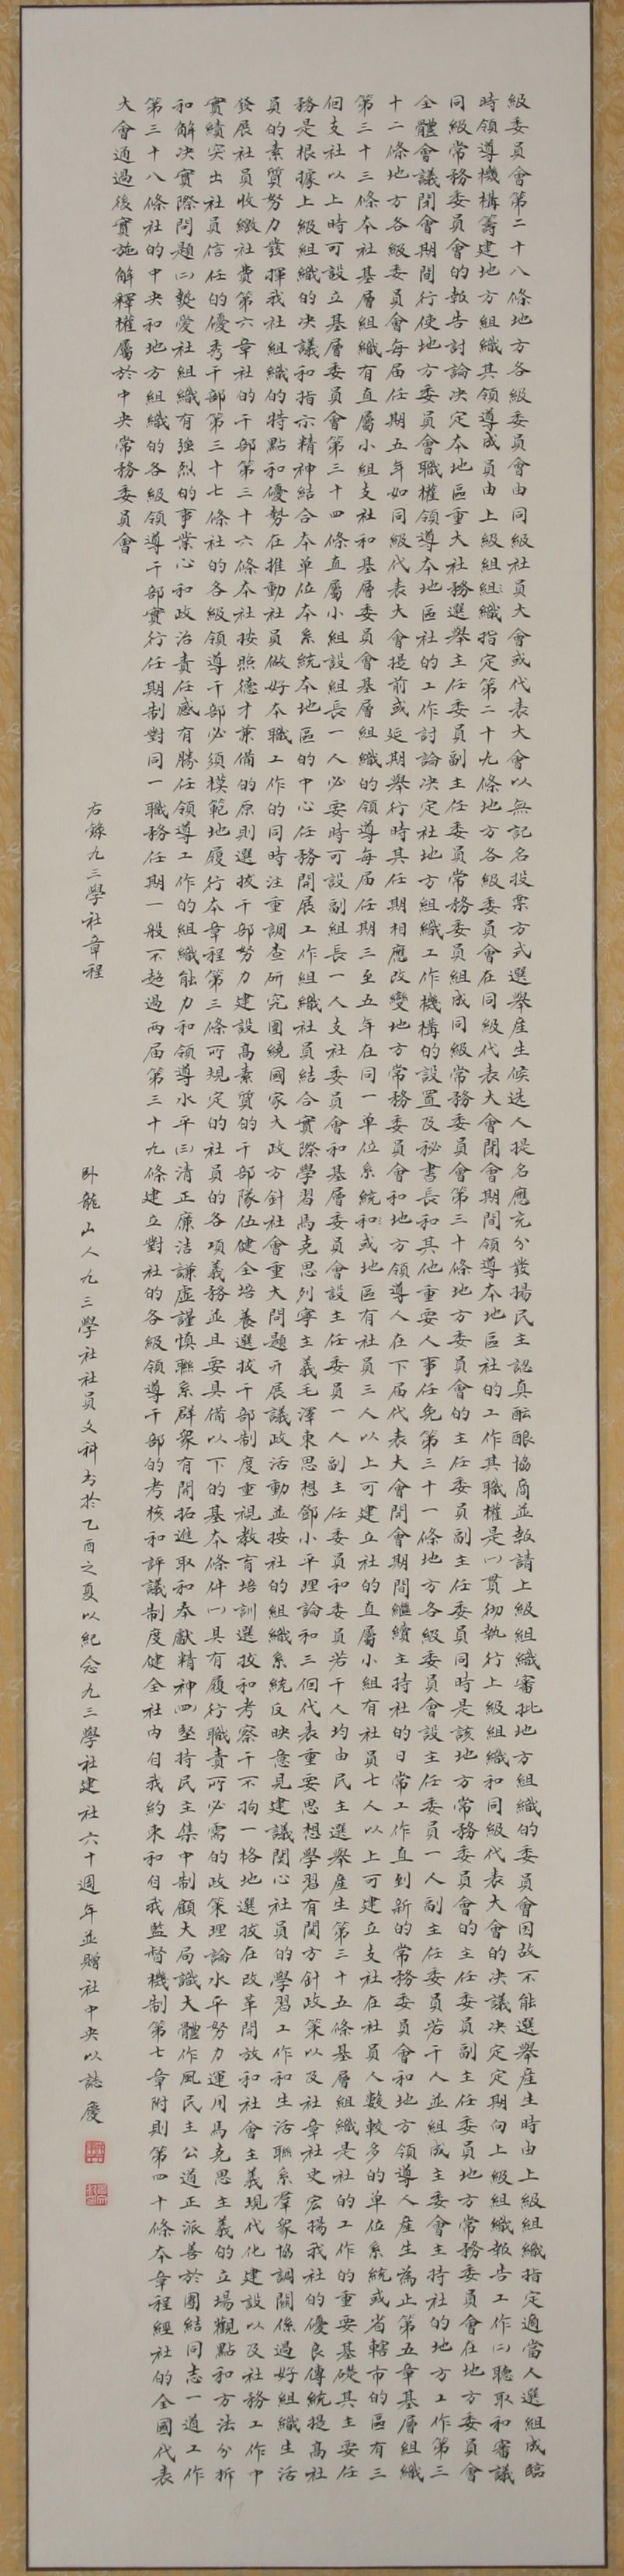 級委員會第二十八條地方各級委員會由同級社員大會或代表大會以無記名投票方式選舉産生候选人提名應充分發揚民主認真醖釀協商並報請上級組織審批地方組織的委員會因故不能選舉産生時由上級組織指定適當人選組成臨
時領導機構籌建地方組織其領導成員由上級組織指定第二十九條地方各級委員會在同級代表大會閉會期間領導本地區社的工作其職權是(一)貫彻執行上級組織和同級代表大會的决議决定定期向上級組織報告工作(二)聽取和審議
同級常務委員會的報告討論决定本地區重大社務選舉主任委員副主任委員常務委員組成同級常務委員會第三十條地方委員會的主任委員副主任委員同時是該地方常務委員會的主任委員副主任委員地方常務委員會在地方委員會
全體會議閉會期間行使地方委員會職權領導本地區社的工作討論决定社地方組織工作機構的設置及秘書長和其他重要人事任免第三十一條地方各級委員會設主任委員一人副主任委員若干人並組成主委會主持社的地方工作第三
十二條地方各級委員會每届任期五年如同級代表大會提前或延期舉行時其任期相應改變地方常務委員會和地方領導人在下届代表大會開會期間繼續主持社的日常工作直到新的常務委員會和地方領導人産生為止第五章基層組織
第三十三條本社基層組織有直屬小組支社和基層委員會基層組織的領導每届任期三至五年在同一單位系統和或地區有社員三人以上可建立社的直屬小組有社員七人以上可建立支社在社員人數較多的單位系統或省轄市的區有三
個支社以上時可設立基層委員會第三十四條直屬小組設組長一人必要時可設副組長一人支社委員會和基層委員會設主任委員一人副主任委員和委員若干人均由民主選舉産生第三十五條基層組織是社的工作的重要基礎其主要任
務是根據上級組織的决議和指示精神結合本單位本系統本地區的中心任務開展工作組織社員結合實際學習馬克思列寧主義毛澤東思想鄧小平理論和三個代表重要思想學習有関方針政策以及社章社史宏揚我社的優良傳統提高社
員的素質努力發揮我社組織的特點和優勢在推動社員做好本職工作的同時注重調查研究圍繞國家大政方針社會重大問題开展議政活動並按社的組織系統反映意見建議関心社員的學習工作和生活聯系羣衆協調關係過好組織生活
發展社員收繳社費第六章社的干部第三十六條本社按照德才兼備的原則選拔干部努力建設高素質的干部隊伍健全培養選拔干部制度重視教育培訓選拔和考察干不拘一格地選拔在改革開放和社會主義現代化建設以及社務工作中
實績突出社員信任的優秀干部第三十七條社的各級領導干部必須模範地履行本章程第三條所規定的社員的各項義務並且要具備以下的基本條件(一)具有履行職責所必需的政策理論水平努力運用馬克思主義的立場觀點和方法分拆
和解决實際問題(二)熱愛社組織有強烈的事業心和政治責任感有勝任領導工作的組織能力和領導水平(三)清正廉洁謙虚謹慎聯系群衆有開拓進取和奉獻精神(四)堅持民主集中制顧大局識大體作風民主公道正派善於團結同志一道工作
第三十八條社的中央和地方組織的各級領導干部實行任期制對同一職務任期一般不超過两届第三十九條建立對社的各級領導干部的考核和評議制度健全社内自我約束和自我監督機制第七章附則第四十條本章程經社的全國代表
大會通過後實施解釋權屬於中央常務委員會
右錄九三學社章程
卧龍山人九三學社社員文科書於乙酉之夏以紀念九三學社建社六十週年並贈社中央以誌慶